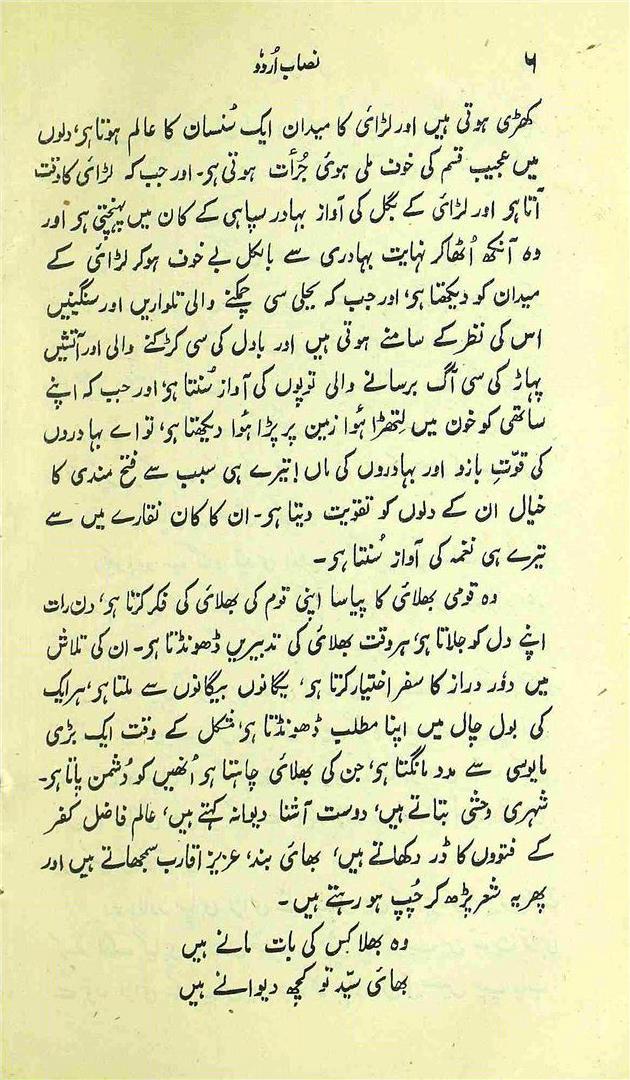 ۶
نصاب اُردو
کھڑی ہوتی ہیں اور لڑائی کا میدان ایک سُنسان کا عالم ہوتا ہو، دلوں
میں عجیب قسم کی خوف ملی ہوئی جُرأت ہوتی ہو۔ اور جب کہ لڑائی کا وقت
آتا ہو اور لڑائی کے بگل کی آواز بہادر سپاہی کے کان میں پہنچتی ہو اور
وہ آنکھ اُٹھا کر نہایت بہادری سے بالکل بے خوف ہوکر لڑائی کے
میدان کو دیکھتا ہو، اور جب کہ بجلی سی چمکنے والی تلواریں اور سنگینیں
اس کی نظر کے سامنے ہوتی ہیں اور بادل کی سی کڑکنے والی اور آتشیں
پہاڑ کی سی آگ برسانے والی توپوں کی آواز سُنتا ہو، اور جب کہ اپنے
ساتھی کو خون میں لِتھڑا ہُوا زمین پر پڑا ہُوا دیکھتا ہو، تو اے بہادروں
کی قوّتِ بازو اور بہادروں کی ماں! تیرے ہی سبب سے فتح مندی کا
خیال ان کے دلوں کو تقویت دیتا ہو۔ ان کا کان نقارے میں سے
تیرے ہی نغمہ کی آواز سُنتا ہو۔
وہ قومی بھلائی کا پیاسا اپنی قوم کی بھلائی کی فکر کرتا ہو، دن رات
اپنے دل کو جلاتا ہو، ہر وقت بھلائی کی تدبیریں ڈھونڈتا ہو۔ ان کی تلاش
میں دُور دراز کا سفر اختیار کرتا ہو، یگانوں بیگانوں سے ملتا ہو، ہر ایک
کی بول چال میں اپنا مطلب ڈھونڈتا ہو، مشکل کے وقت ایک بڑی
مایوسی سے مدد مانگتا ہو، جن کی بھلائی چاہتا ہو اُنھیں کو دُشمن پاتا ہو۔
شہری وحشی بتاتے ہیں، دوست آشنا دیوانہ کہتے ہیں، عالم فاضل کفر
کے فتووں کا ڈر دکھاتے ہیں، بھائی بند، عزیز اقارب سمجھاتے ہیں اور
پھر یہ شعر پڑھ کر چُپ ہو رہتے ہیں۔
وہ بھلا کس کی بات مانے ہیں
بھائی سیّد تو کچھ دیوانے ہیں